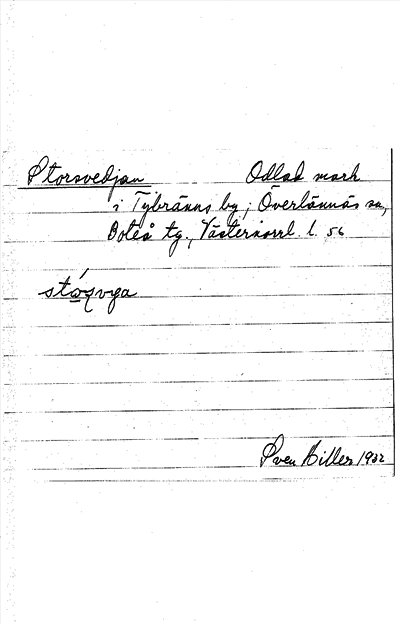 Storsvedjan Odlad mark
i Tybränns by, Överlännäs sn,
Boteå tg., Västernorrl. l. 56
Sven Hiller 1932